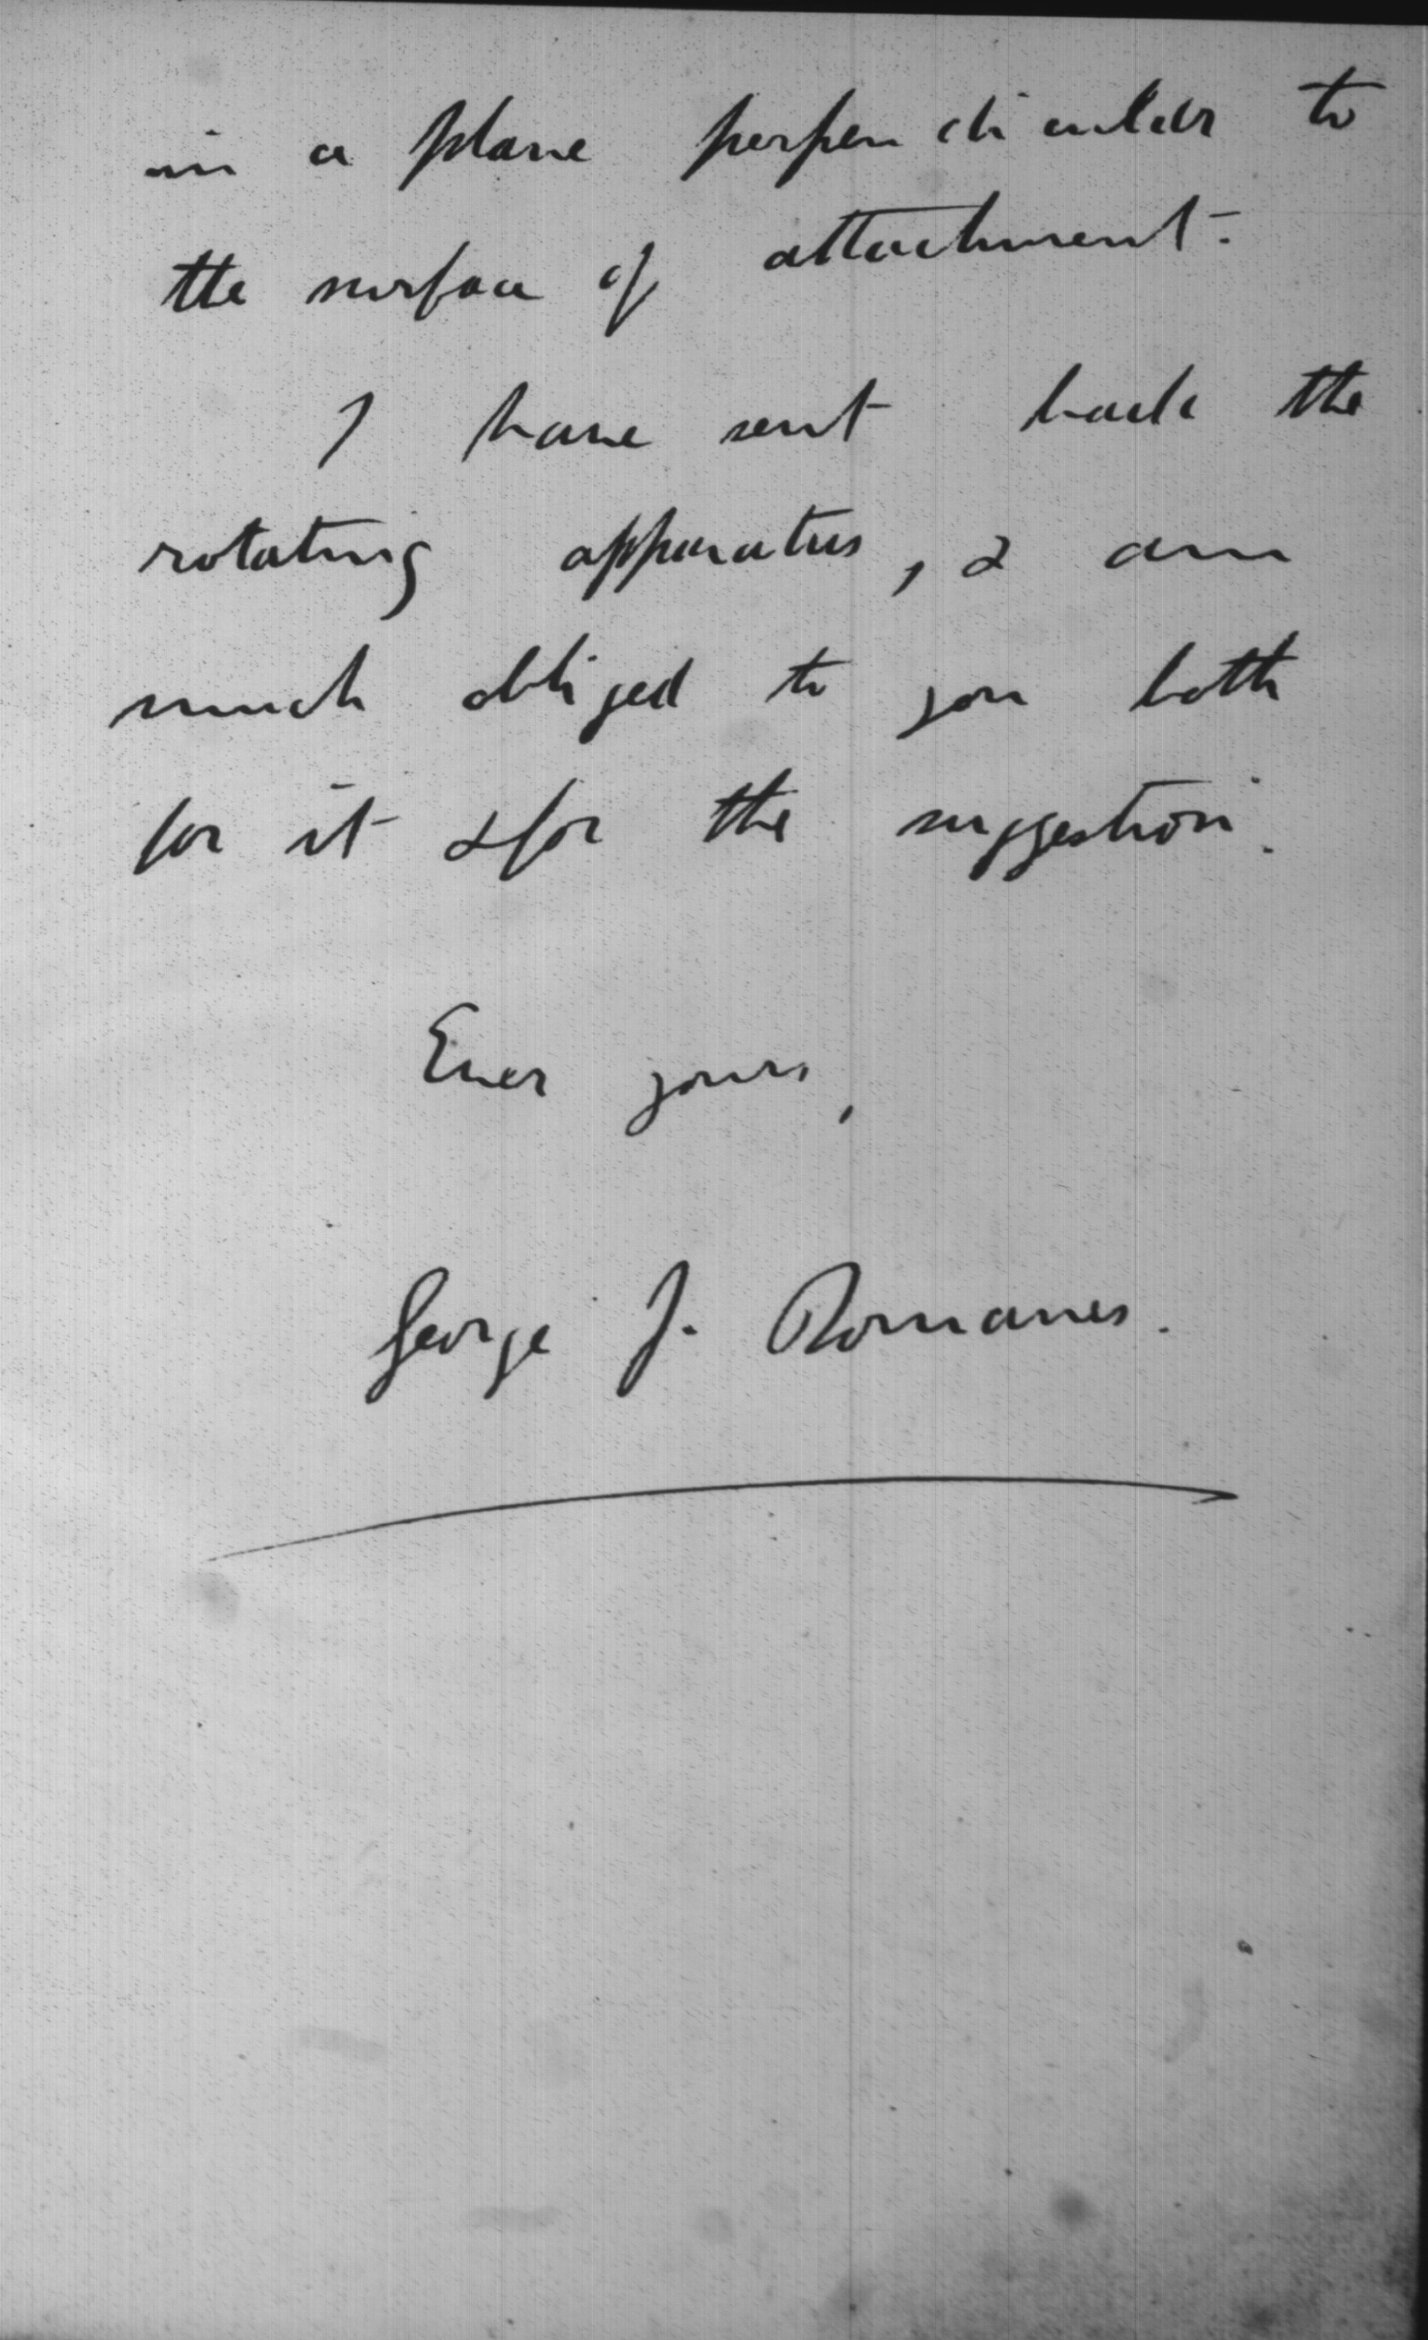 in a plane perpendicular to
the surface of attachment.
I have sent back the
rotating apparatus, & am
much obliged to you both
for it & for the suggestion.
Ever yours,
George J. Romanes.